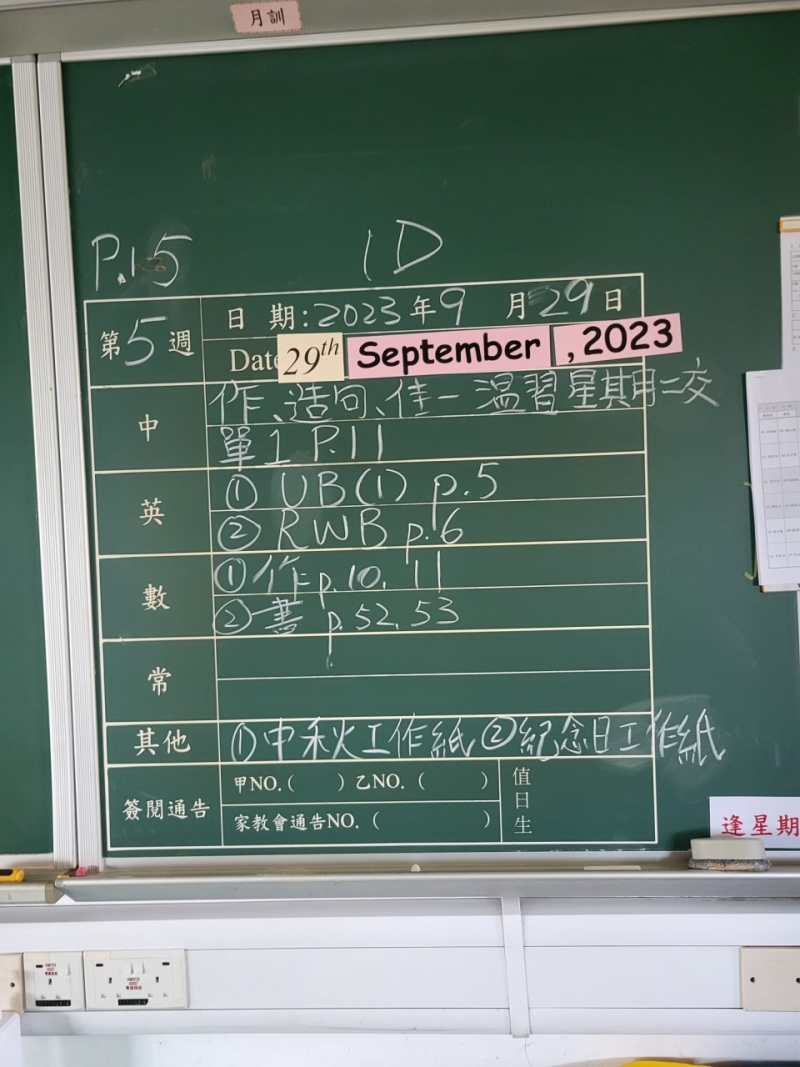 月訓
P.15
1D
第5週
日 期:2023年9 月29日
Date 29th September , 2023
中
作、造句、佳一 溫習 星期二交
單1 P.11
英
① UB(1) p.5
② RWB p.6
數
①作 p.10, 11
②書 p.52, 53
常
其他
①中秋工作紙 ②紀念日工作紙
簽閱通告
甲NO.( ) 乙NO. ( )
家教會通告NO. ( )
值日生
逢星期